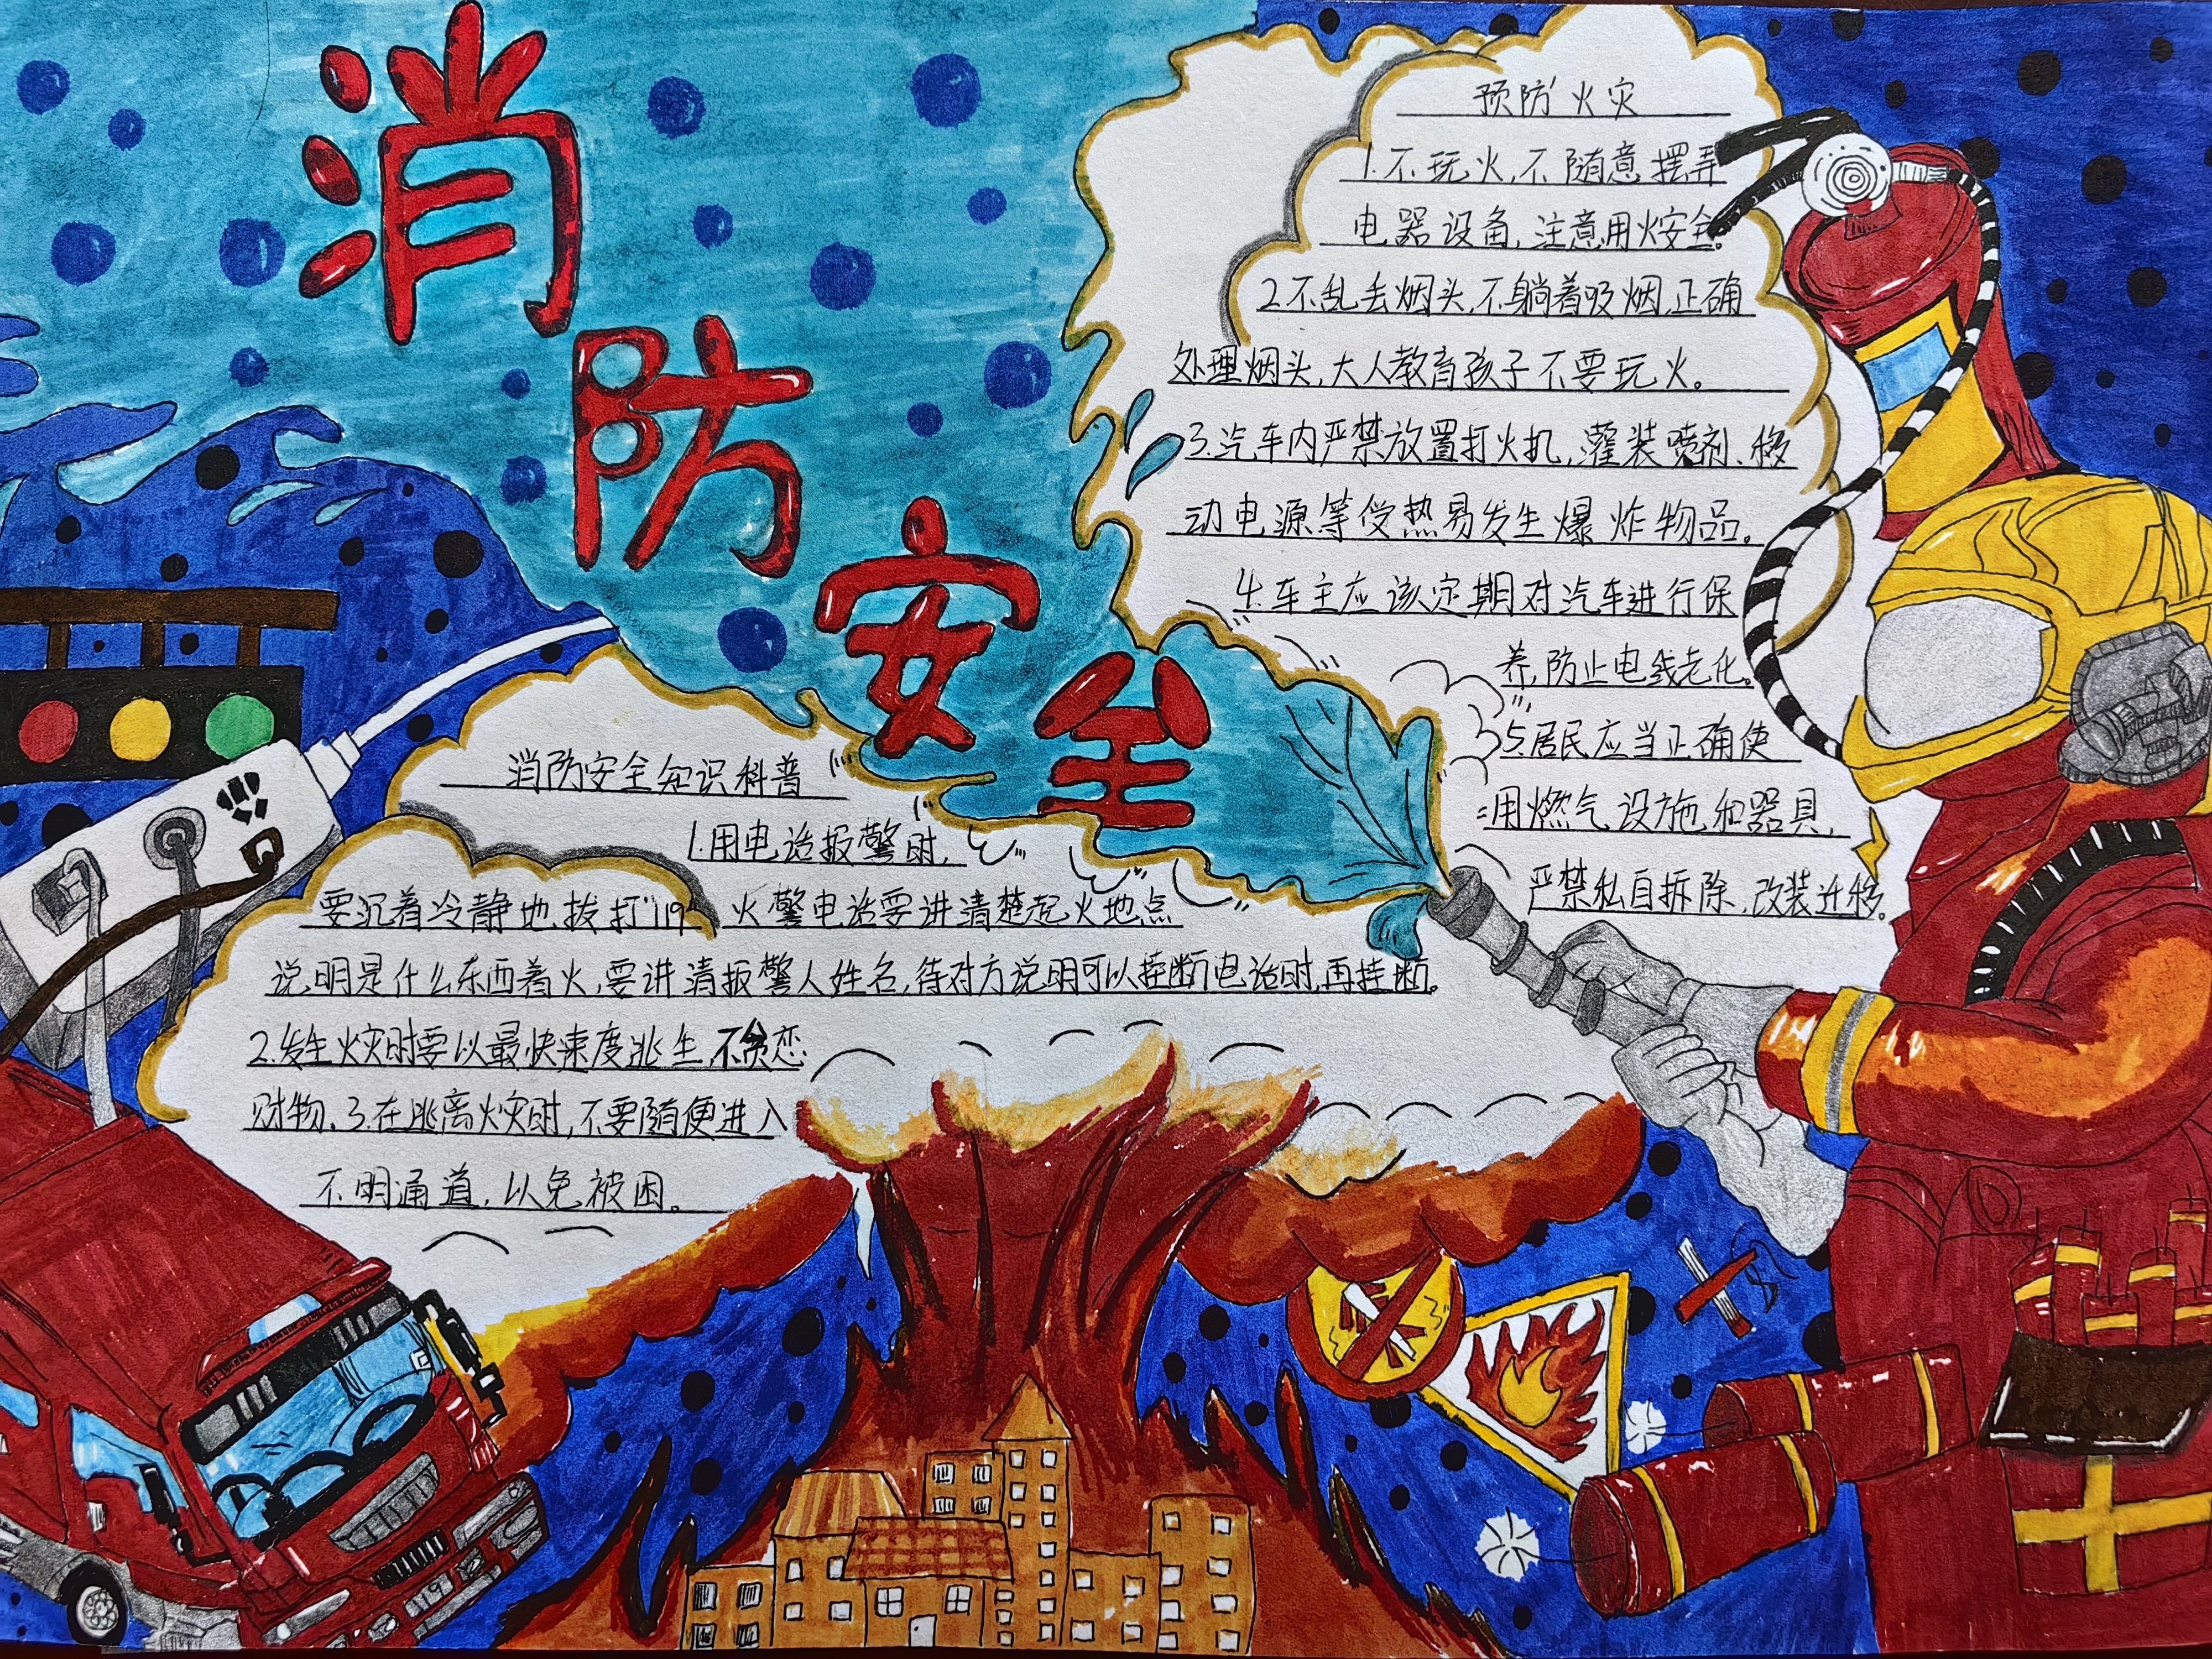 消防安全
预防火灾
1.不玩火,不随意摆弄
电器设备,注意用火安全。
2.不乱丢烟头,不躺着吸烟,正确
处理烟头,大人教育孩子不要玩火。
3.汽车内严禁放置打火机,灌装喷剂、移
动电源等受热易发生爆炸物品。
4.车主应该定期对汽车进行保
养,防止电线老化。
5.居民应当正确使
用燃气设施和器具,
严禁私自拆除,改装迁移。
消防安全知识科普
1.用电话报警时,
要沉着冷静地拔打"119" 火警电话要讲清楚起火地点
说明是什么东西着火,要讲清报警人姓名,待对方说明可以挂断电话时,再挂断。
2.发生火灾时要以最快速度逃生,不贪恋
财物。3.在逃离火灾时,不要随便进入
不明通道,以免被困。